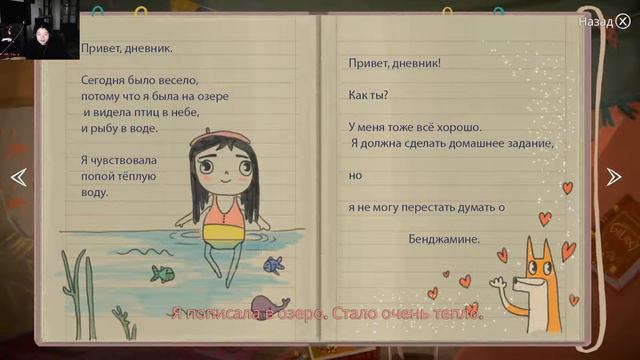 Назад
Привет, дневник.
Сегодня было весело,
потому что я была на озере
и видела птиц в небе,
и рыбу в воде.
Я чувствовала
попой тёплую
воду.
Привет, дневник!
Как ты?
У меня тоже всё хорошо.
Я должна сделать домашнее задание,
но
я не могу перестать думать о
Бенджамине.
Я пописала в озеро. Стало очень тепло.